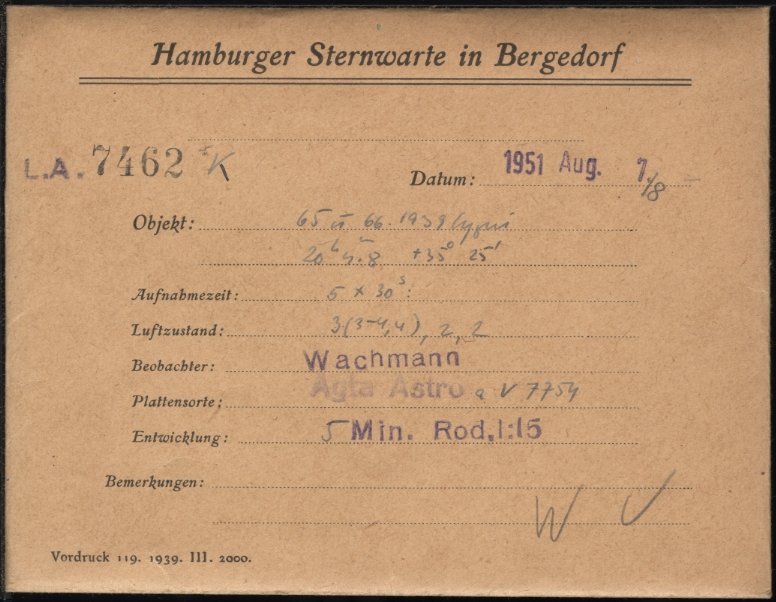 Hamburger Sternwarte in Bergedorf
L.A. 7462 K
Datum: 1951 Aug. 7./8
Objekt: 65 u 66. 1939 Cygni
20ʰ 4ᵐ.8 +35° 25'
Aufnahmezeit: 5 × 30ˢ.
Luftzustand: 3(3-4,4), 2, 2
Beobachter: Wachmann
Plattensorte: Agfa Astro V 7754
Entwicklung: 5 Min. Rod.1:15
Bemerkungen:
W V
Vordruck 119. 1939. III. 2000.